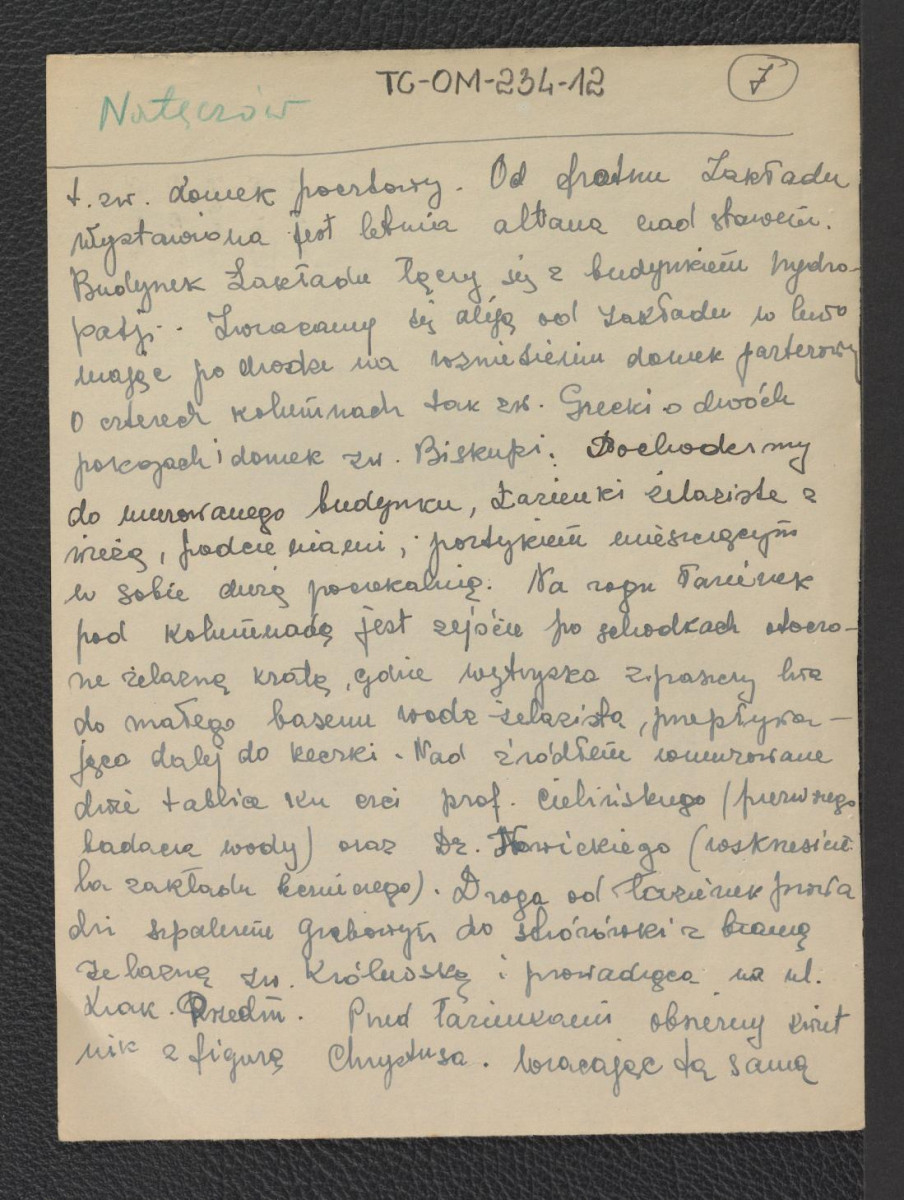 TG-OM-234-12
7
Nałęczów
t. zw. domek pocztowy. Od frontu Zakładu
wystawiona jest letnia altana nad stawem.
Budynek Zakładu łączy się z budynkiem hydro-
patji. Zwracamy się aleją od zakładu w lewo
mając po drodze na wzniesieniu domek parterowy
o czterech kolumnach tak zw. Grecki o dwóch
pokojach i domek zw. Biskupi. Dochodzimy
do murowanego budynku, Łazienki żelaziste z
wieżą, podcieniami, portykiem mieszczącym
w sobie dużą poczekalnię. Na rogu łazienek
pod kolumnadą jest zejście po schodkach otoczo-
ne żelazną kratą, gdzie wytryska z paszczy lwa
do małego basenu woda żelazista, przepływa-
jąca dalej do rzeczki. Nad źródłem wmurowane
dwie tablice ku czci prof. Cielińskiego (pierwszego
badacza wody) oraz Dr. Nowickiego (wskrzesiciel
la zakładu leczniczego). Droga od łazienek prowa
dzi szpalerem grabowym do stróżówki z bramą
żelazną zw. Królewską i prowadzącą na ul.
Krak. Przedm. Przed łazienkami obszerny kwiet
nik z figurą Chrystusa. Wracając tą samą